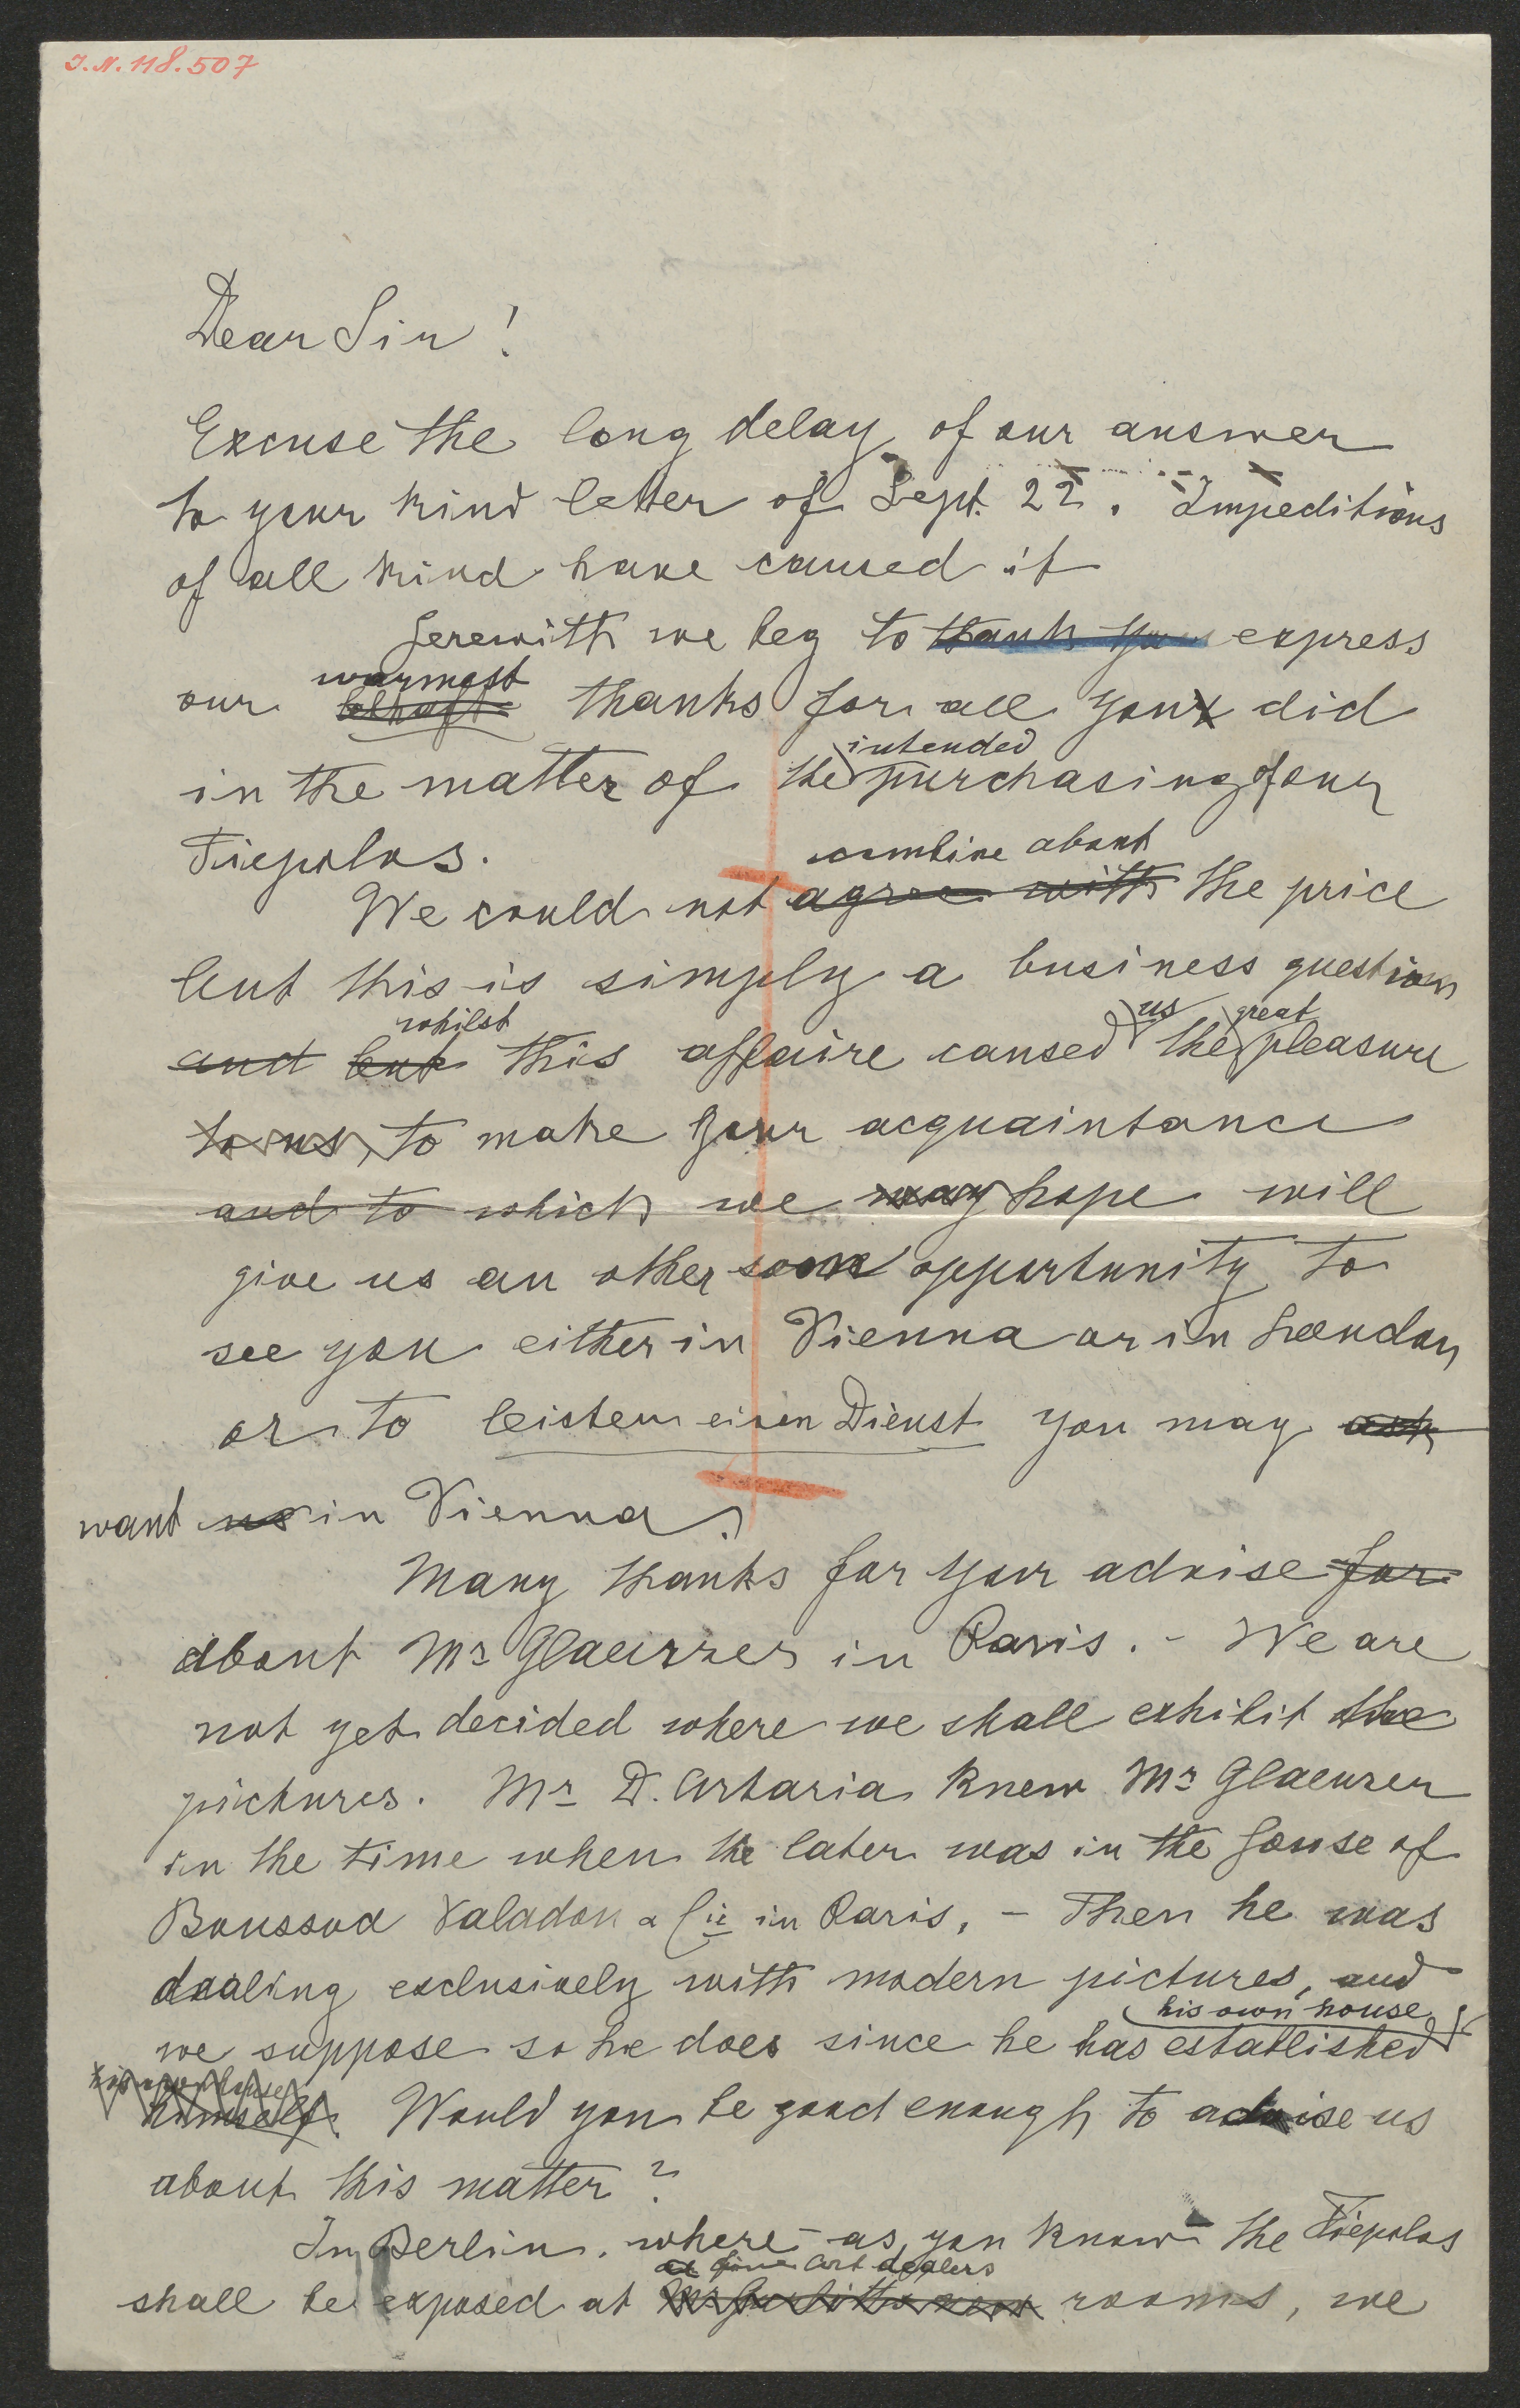 J.N. 118.507
Dear Sir!
Excuse the long delay of our answer
to your kind letter of Sept. 22. Impeditions
of all kind have caused it
Herewith we beg to thank you express
warmest
our thanks for all you did
intended
in the matter of the purchasing of our
Tiepolos.
combine about
We could not agree with the price
but this is simply a business question
whilst us great
and but this affaire caused the pleasure
to us, to make your acquaintance
and to which we may hope will
give us an other soon opportunity to
see you either in Vienna or in London
or to leisten einen Dienst you may ask
want us in Vienna.
Many thanks for your advise for
about Mr Glaenzer in Paris. - We are
not yet decided where we shall exhibit the
pictures. Mr D. Artaria knew Mr Glaenzer
in the time when the later was in the House of
Boussod Valadon & Cie in Paris, - Then he was
dealing exclusively with modern pictures, and
his own house
we suppose so he does since he has established
his own house
himself. Would you be good enough to advise us
about this matter?
In Berlin, where - as you know - the Tiepolos
Art dealers
shall be exposed at rooms, we